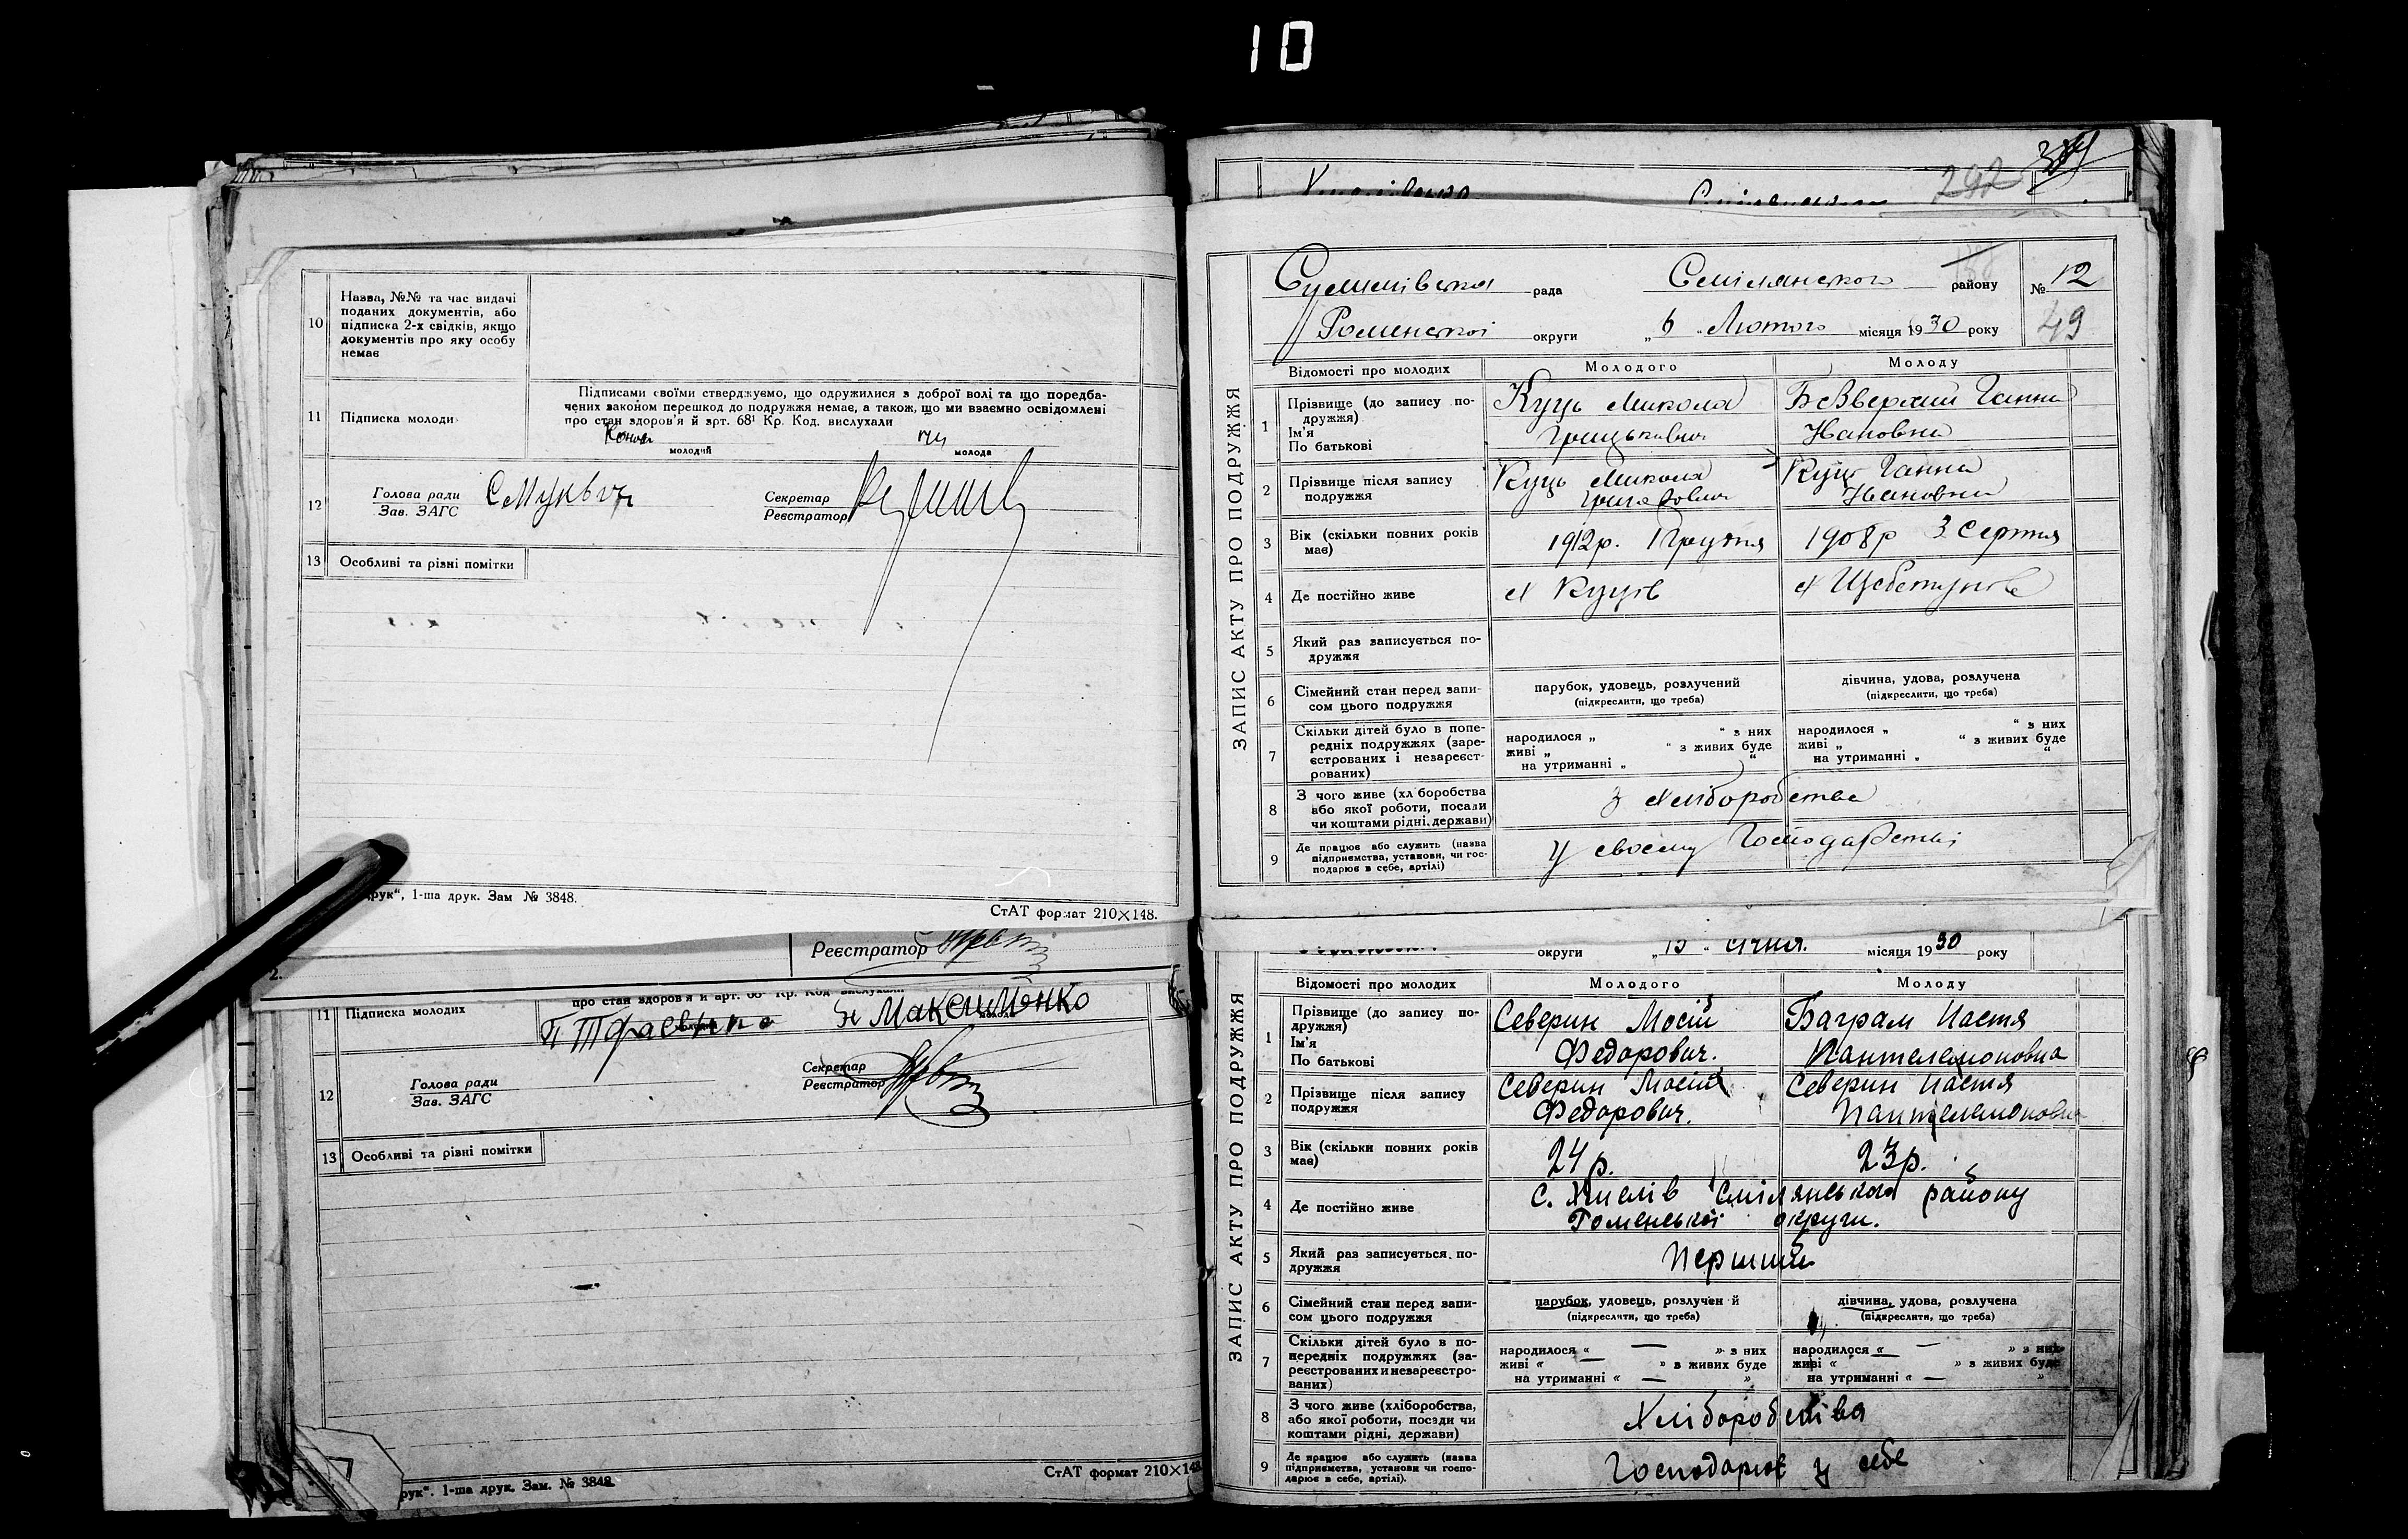 10
292
10 Назва, №№ та час видачі
поданих документів, або
підписка 2-х свідків, якщо
документів про яку особу
немає
11 Підписка молоди
Підписами своїми стверджуємо, що одружилися з доброї волі та що передба-
чених законом перешкод до подружжя немає, а також, що ми взаємно освідомлені
про стан здоров'я й арт. 68¹ Кр. Код. вислухали
молодий молода
12 Голова ради
Зав. ЗАГС
Секретар
Реєстратор
13 Особливі та різні помітки
друк“, 1-ша друк. Зам № 3848.
СтАТ формат 210×148.
Реєстратор
2.
про стан здоров'я й арт. 68 Кр. Код вислухали
11 Підписка молодих
Максименко
12 Голова ради
Зав. ЗАГС
Секретар
Реєстратор
13 Особливі та різні помітки
СтАТ формат 210×148
рук“. 1-ша друк. Зам. № 3848.
ЗАПИС АКТУ ПРО ПОДРУЖЖЯ
рада Смілянского району № 12
Роменскої округи „6 „ Лютого місяця 1930 року 49
Відомості про молодих Молодого Молоду
1 Прізвище (до запису по-
дружжя)
Ім'я
По батькові
Куць Микола
Ганна
2 Прізвище після запису
подружжя
Куць Микола
Куць Ганна
3 Вік (скільки повних років
має)
1912р. 1 Грудня 1908р 3 Серпня
4 Де постійно живе
х Куців
5 Який раз записується по-
дружжя
6 Сімейний стан перед запи-
сом цього подружжя
парубок, удовець, розлучений
(підкреслити, що треба)
дівчина, удова, розлучена
(підкреслити, що треба)
7 Скільки дітей було в попе-
редніх подружжях (заре-
єстрованих і незареєст-
рованих)
народилося „ “ з них
живі „ “ з живих буде
на утриманні „ “
народилося „ “ з них
живі „ “ з живих буде
на утриманні „ “
8 З чого живе (хл боробства
або якої роботи, посади
чи коштами рідні, держави)
з хліборобства
9 Де працює або служить (назва
підприємства, установи, чи гос-
подарює в себе, артілі)
у своєму Господарстві
округи „15 „ січня. місяця 1930 року
ЗАПИС АКТУ ПРО ПОДРУЖЖЯ
Відомості про молодих Молодого Молоду
1 Прізвище (до запису по-
дружжя)
Ім'я
По батькові
Северин Мосій
Федорович.
Баграм Настя
Пантелемоновна
2 Прізвище після запису
подружжя
Северин Мосій
Федорович.
Северин Настя
Пантелемоновна
3 Вік (скільки повних років
має)
24 р. 23 р.
4 Де постійно живе
с. Хмелів Смілянського району
Роменської округи.
5 Який раз записується по-
дружжя
Перший
6 Сімейний стан перед запи-
сом цього подружжя
парубок, удовець, розлучен й
(підкреслити, що треба)
дівчина, удова, розлучена
(підкреслити, що треба)
7 Скільки дітей було в по-
передніх подружжях (за-
реєстрованих и незареєстро-
ваних)
народилося “ — » з них
живі “ — » з живих буде
на утриманні “ — »
народилося “ — » з них
живі “ » з живих буде
на утриманні “ — »
8 З чого живе (хліборобства,
або якої роботи, посади чи
коштами рідні, держави)
Хліборобства
9 Де працює або служить (назва
підприємства, установи чи госпо-
дарює в себе, артілі).
Господарює у себе